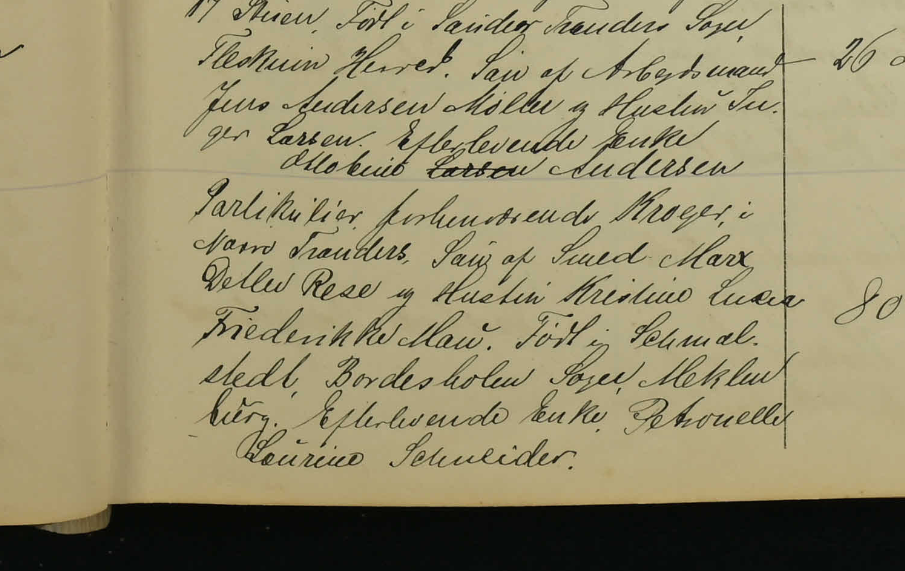 Født i Sønder Tranders Sogn,
Fleskum Herred. Søn af Arbejdsmand 26
Jens Andersen Møller og Hustru In-
ger Larsen. Efterlevende Enke
Ottobine Larsen Andersen
Partikulier, forhenværende Kroger, i
Nørre Tranders, Søn af Smed Marx
Detlev Rese og Hustru Kristine Lucia 80
Friederikke Mau. Født i Schmal-
stedt, Bordesholm Sogn, Meklen
burg. Efterlevende Enke, Petronelle
Laurine Schneider.